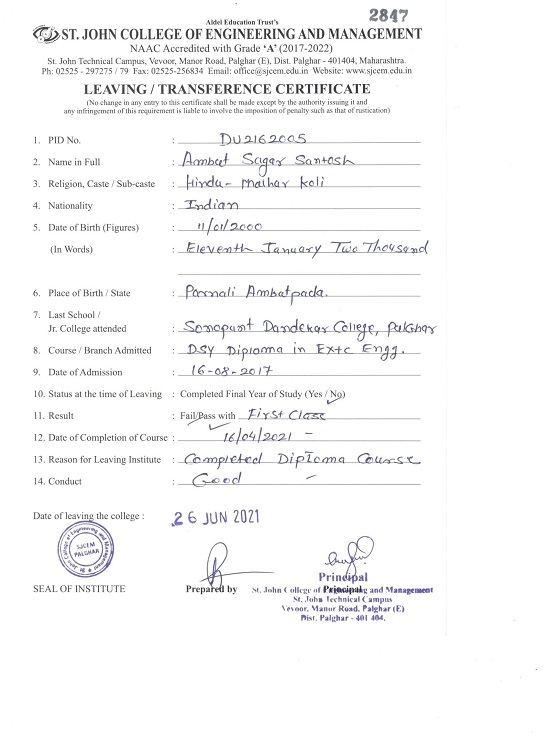 Aldel Education Trust's
2847
ST. JOHN COLLEGE OF ENGINEERING AND MANAGEMENT
NAAC Accredited with Grade ‘A’ (2017-2022)
St. John Technical Campus, Vevoor, Manor Road, Palghar (E), Dist. Palghar - 401404, Maharashtra.
Ph: 02525 - 297275 / 79 Fax: 02525-256834 Email: office@sjcem.edu.in Website: www.sjcem.edu.in
LEAVING / TRANSFERENCE CERTIFICATE
(No change in any entry to this certificate shall be made except by the authority issuing it and
any infringement of this requirement is liable to involve the imposition of penalty such as that of rustication)
1. PID No. : DU2162005
2. Name in Full : Ambat Sagar Santosh
3. Religion, Caste / Sub-caste : Hindu- Malhar Koli
4. Nationality : Indian
5. Date of Birth (Figures) : 11/01/2000
(In Words) : Eleventh January Two Thousand
6. Place of Birth / State : Parnali Ambatpada.
7. Last School /
Jr. College attended : Sonopant Dandekar College, Palghar
8. Course / Branch Admitted : DSY Diploma in Extc Engg.
9. Date of Admission : 16-08-2017
10. Status at the time of Leaving : Completed Final Year of Study (Yes / No)
11. Result : Fail/Pass with First Class
12. Date of Completion of Course : 16/04/2021 -
13. Reason for Leaving Institute : Completed Diploma Course
14. Conduct : Good -
Date of leaving the college : 26 JUN 2021
SJCEM
PALGHAR
Principal
SEAL OF INSTITUTE Prepared by Principal
St. John College of Engineering and Management
St. John Technical Campus
Vevoor, Manor Road, Palghar (E)
Dist. Palghar - 401 404.